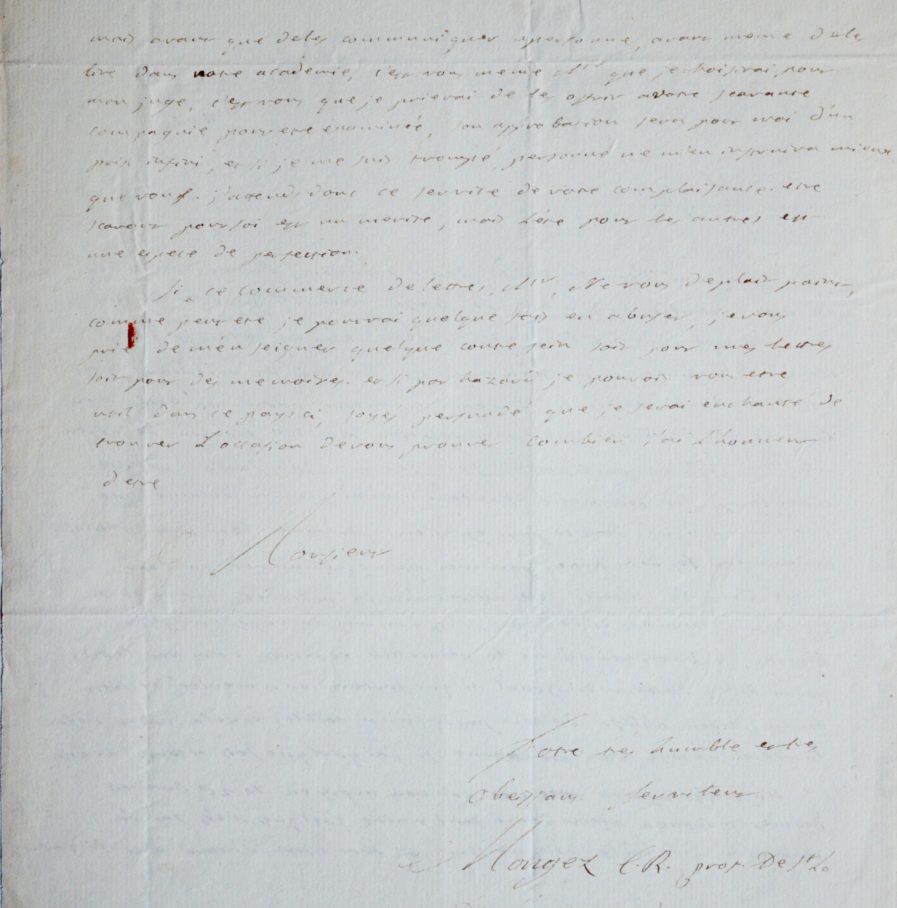 mais avant que de les communiquer a personne, avant meme de les
lire dans notre academie, c'est vous meme Mr que je choisirai pour
mon juge, c'est vous que je prierai de les offrir a votre scavante
compagnie pour etre examinée, son approbation sera pour moi d'un
prix infini, et si je me suis trompé, personne ne m'en instruira mieux
que vous. j'attends donc ce service de votre complaisance. etre
scavant pour soi est un merite, mais l'etre pour les autres est
une espece de perfection.
Si ce commerce de lettres, Mr, Ne vous deplait point,
comme peut etre je pourrai quelque fois en abuser, je vous
prie de m'enseigner quelque contre sein soit pour mes lettres
soit pour des memoires. et si par hazard je pouvois vous etre
util dans ce pays ci, soyes persuadé que je serai enchanté de
trouver l'occasion de vous prouver combien j'ai l'honneur
d'etre
Monsieur
Votre très humble et tres
Obeissant serviteur
Mongez C.R. prof. De St Lo